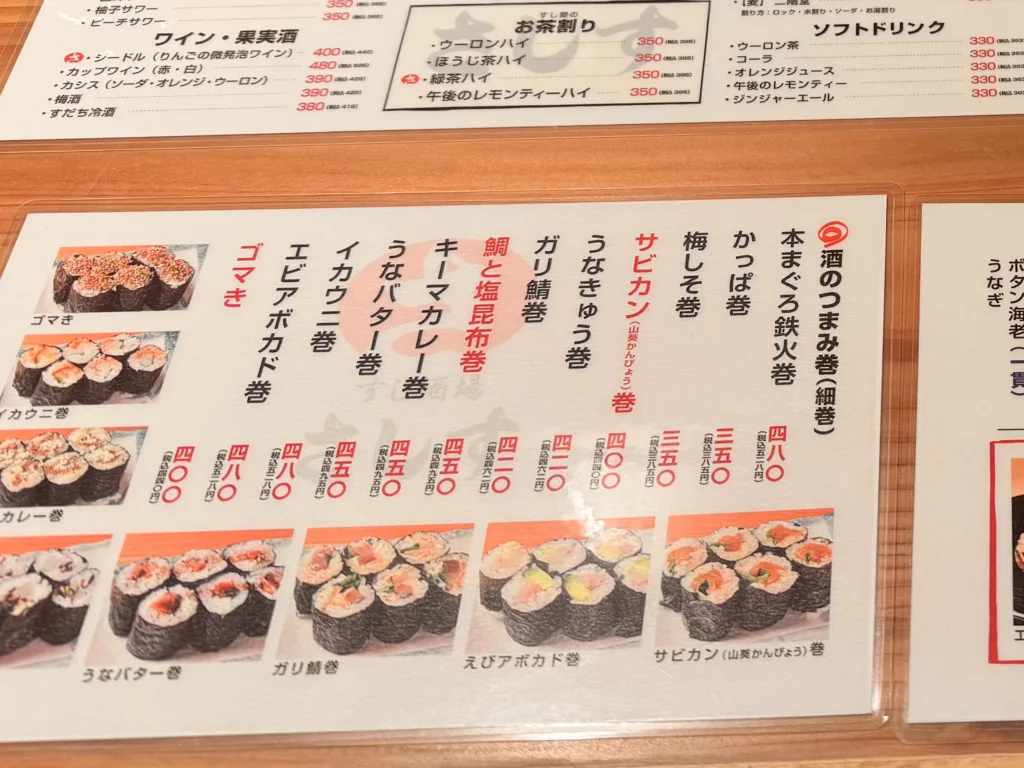 ・柚子サワー 350(税込385)
・ピーチサワー 350(税込385)
ワイン・果実酒
・シードル（りんごの微発泡ワイン） 400(税込440)
・カップワイン（赤・白） 480(税込528)
・カシス（ソーダ・オレンジ・ウーロン） 390(税込429)
・梅酒 390(税込429)
・すだち冷酒 380(税込418)
すし屋の
お茶割り
・ウーロンハイ 350(税込385)
・ほうじ茶ハイ 350(税込385)
・緑茶ハイ 350(税込385)
・午後のレモンティーハイ 350(税込385)
・【麦】二階堂
割り方：ロック・水割り・ソーダ・お湯割り
ソフトドリンク
・ウーロン茶 330(税込363
・コーラ 330(税込363
・オレンジジュース 330(税込363
・午後のレモンティー 330(税込363
・ジンジャーエール 330(税込363
酒のつまみ巻（細巻）
本まぐろ鉄火巻 四八〇(税込五二八円)
かっぱ巻 三五〇(税込三八五円)
梅しそ巻 三五〇(税込三八五円)
サビカン（山葵かんぴょう）巻 四〇〇(税込四四〇円)
うなきゅう巻 四二〇(税込四六二円)
ガリ鯖巻 四二〇(税込四六二円)
鯛と塩昆布巻 四五〇(税込四九五円)
キーマカレー巻 四五〇(税込四九五円)
うなバター巻 四五〇(税込四九五円)
イカウニ巻 四八〇(税込五二八円)
エビアボカド巻 四八〇(税込五二八円)
ゴマき 四〇〇(税込四四〇円)
すし酒場
さしす
ゴマき
イカウニ巻
カレー巻
うなバター巻
ガリ鯖巻
えびアボカド巻
サビカン（山葵かんぴょう）巻
ボタン海老（一貫）
うなぎ